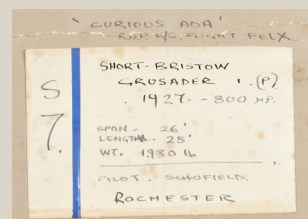 'CURIOUS ADA'
S
7.
SHORT-BRISTOW
CRUSADER 1. (P)
1927. - 800 HP.
SPAN - 26'
LENGTH. - 25'
WT. 1930 lb
PILOT. SCHOFIELD.
ROCHESTER